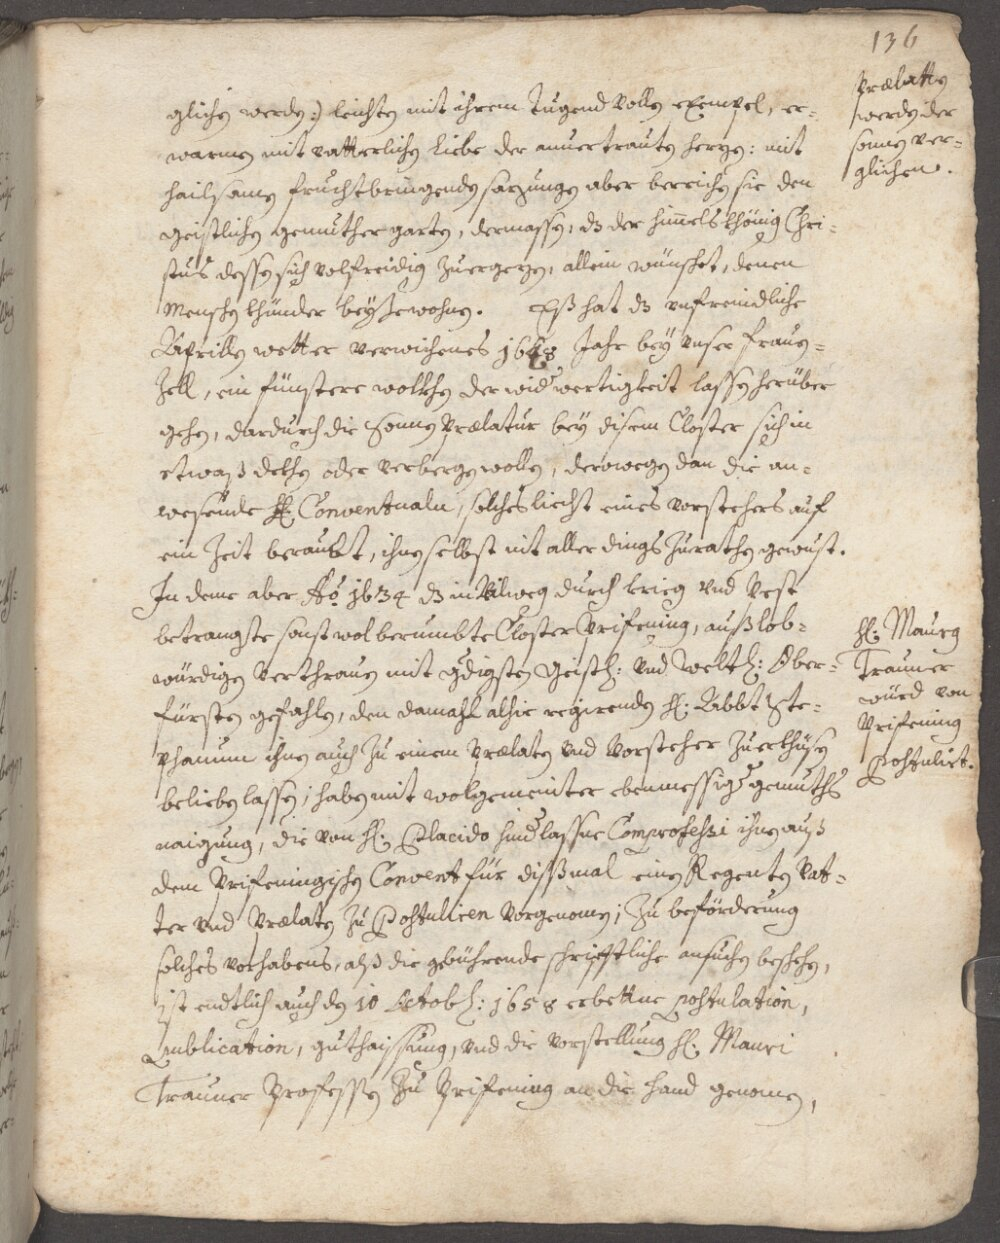 136
Prælaten
werden der
sonnen ver-
glichen.
glichen werden:) leichten mit ihrem tugend vollen exempel, er-
warmen mit vatterlichen liebe der anvertrauten herzen: mit
hailsamen fruchtbringenden sazungen aber bereichen sie den
geistlichen gemüther garten, dermassen, dz der himelskhönig Chri-
stus dessen sich volfreidig zuergezen, allein wünshet, denen
Menschen khünder beyzewohnen. Eß hat dz unfreindliche
Aprillen wetter verwichenes 1658 Jahr bey unser frauen-
Zell, ein fünstere wolkhen der widwertigkeit lassen herüber
gehen, dardurch die Sonnen Prælatur bey disem Closter sich in
etwaß dekhen oder verbergen wollen, derowegen dan die an-
wesende H. Conventualn, solches liecht eines vorstehers auf
ein Zeit beraubt, ihnen selbst nit aller dings zurathen gewust.
In deme aber Ao 1634 dz in durch krieg und Pest
betrangste sonst wol berumbte Closter Prifening, auß lob-
würdigen verthrauen mit gdigsten Geistl: und Weltl: Ober-
fürsten gefahlen, den damahl alhie regirenden H: Abbt Ste-
phanum ihnen auch zu einem Prælaten und vorsteher zuerkhüsen
belieben lassen; haben mit wolgemeinter ebenmessiger gemuths
naigung, die von H: Placido hindlassne Comprofessi ihnen auß
dem Prifeningischen Convent für dißmal einen Regenten vat-
ter und Prælaten zu Postuliern vorgenomen; Zu beförderung
solches vorhabens, alß die gebührende schrifftliche ansuchen beschehen,
ist endtlich auch den 10 Octob: 1658 erbettne postulation,
Publication, guthaissung, und die vorstellung H: Mauri
Trauner Professen zu Prifening an die hand genomen,
H: Maurq
Trauner
würd von
Prifening
Postulirt.